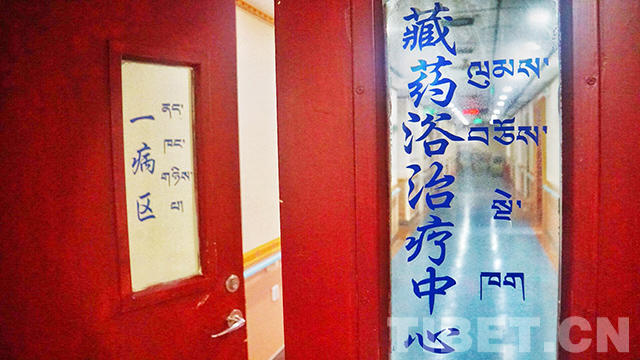 一病区
ནད་
ཁང་
གཉིས་
པ།
藏药浴治疗中心
ལུམས་
བཅོས་
སྡེ་
ཁག
TIBET.CN